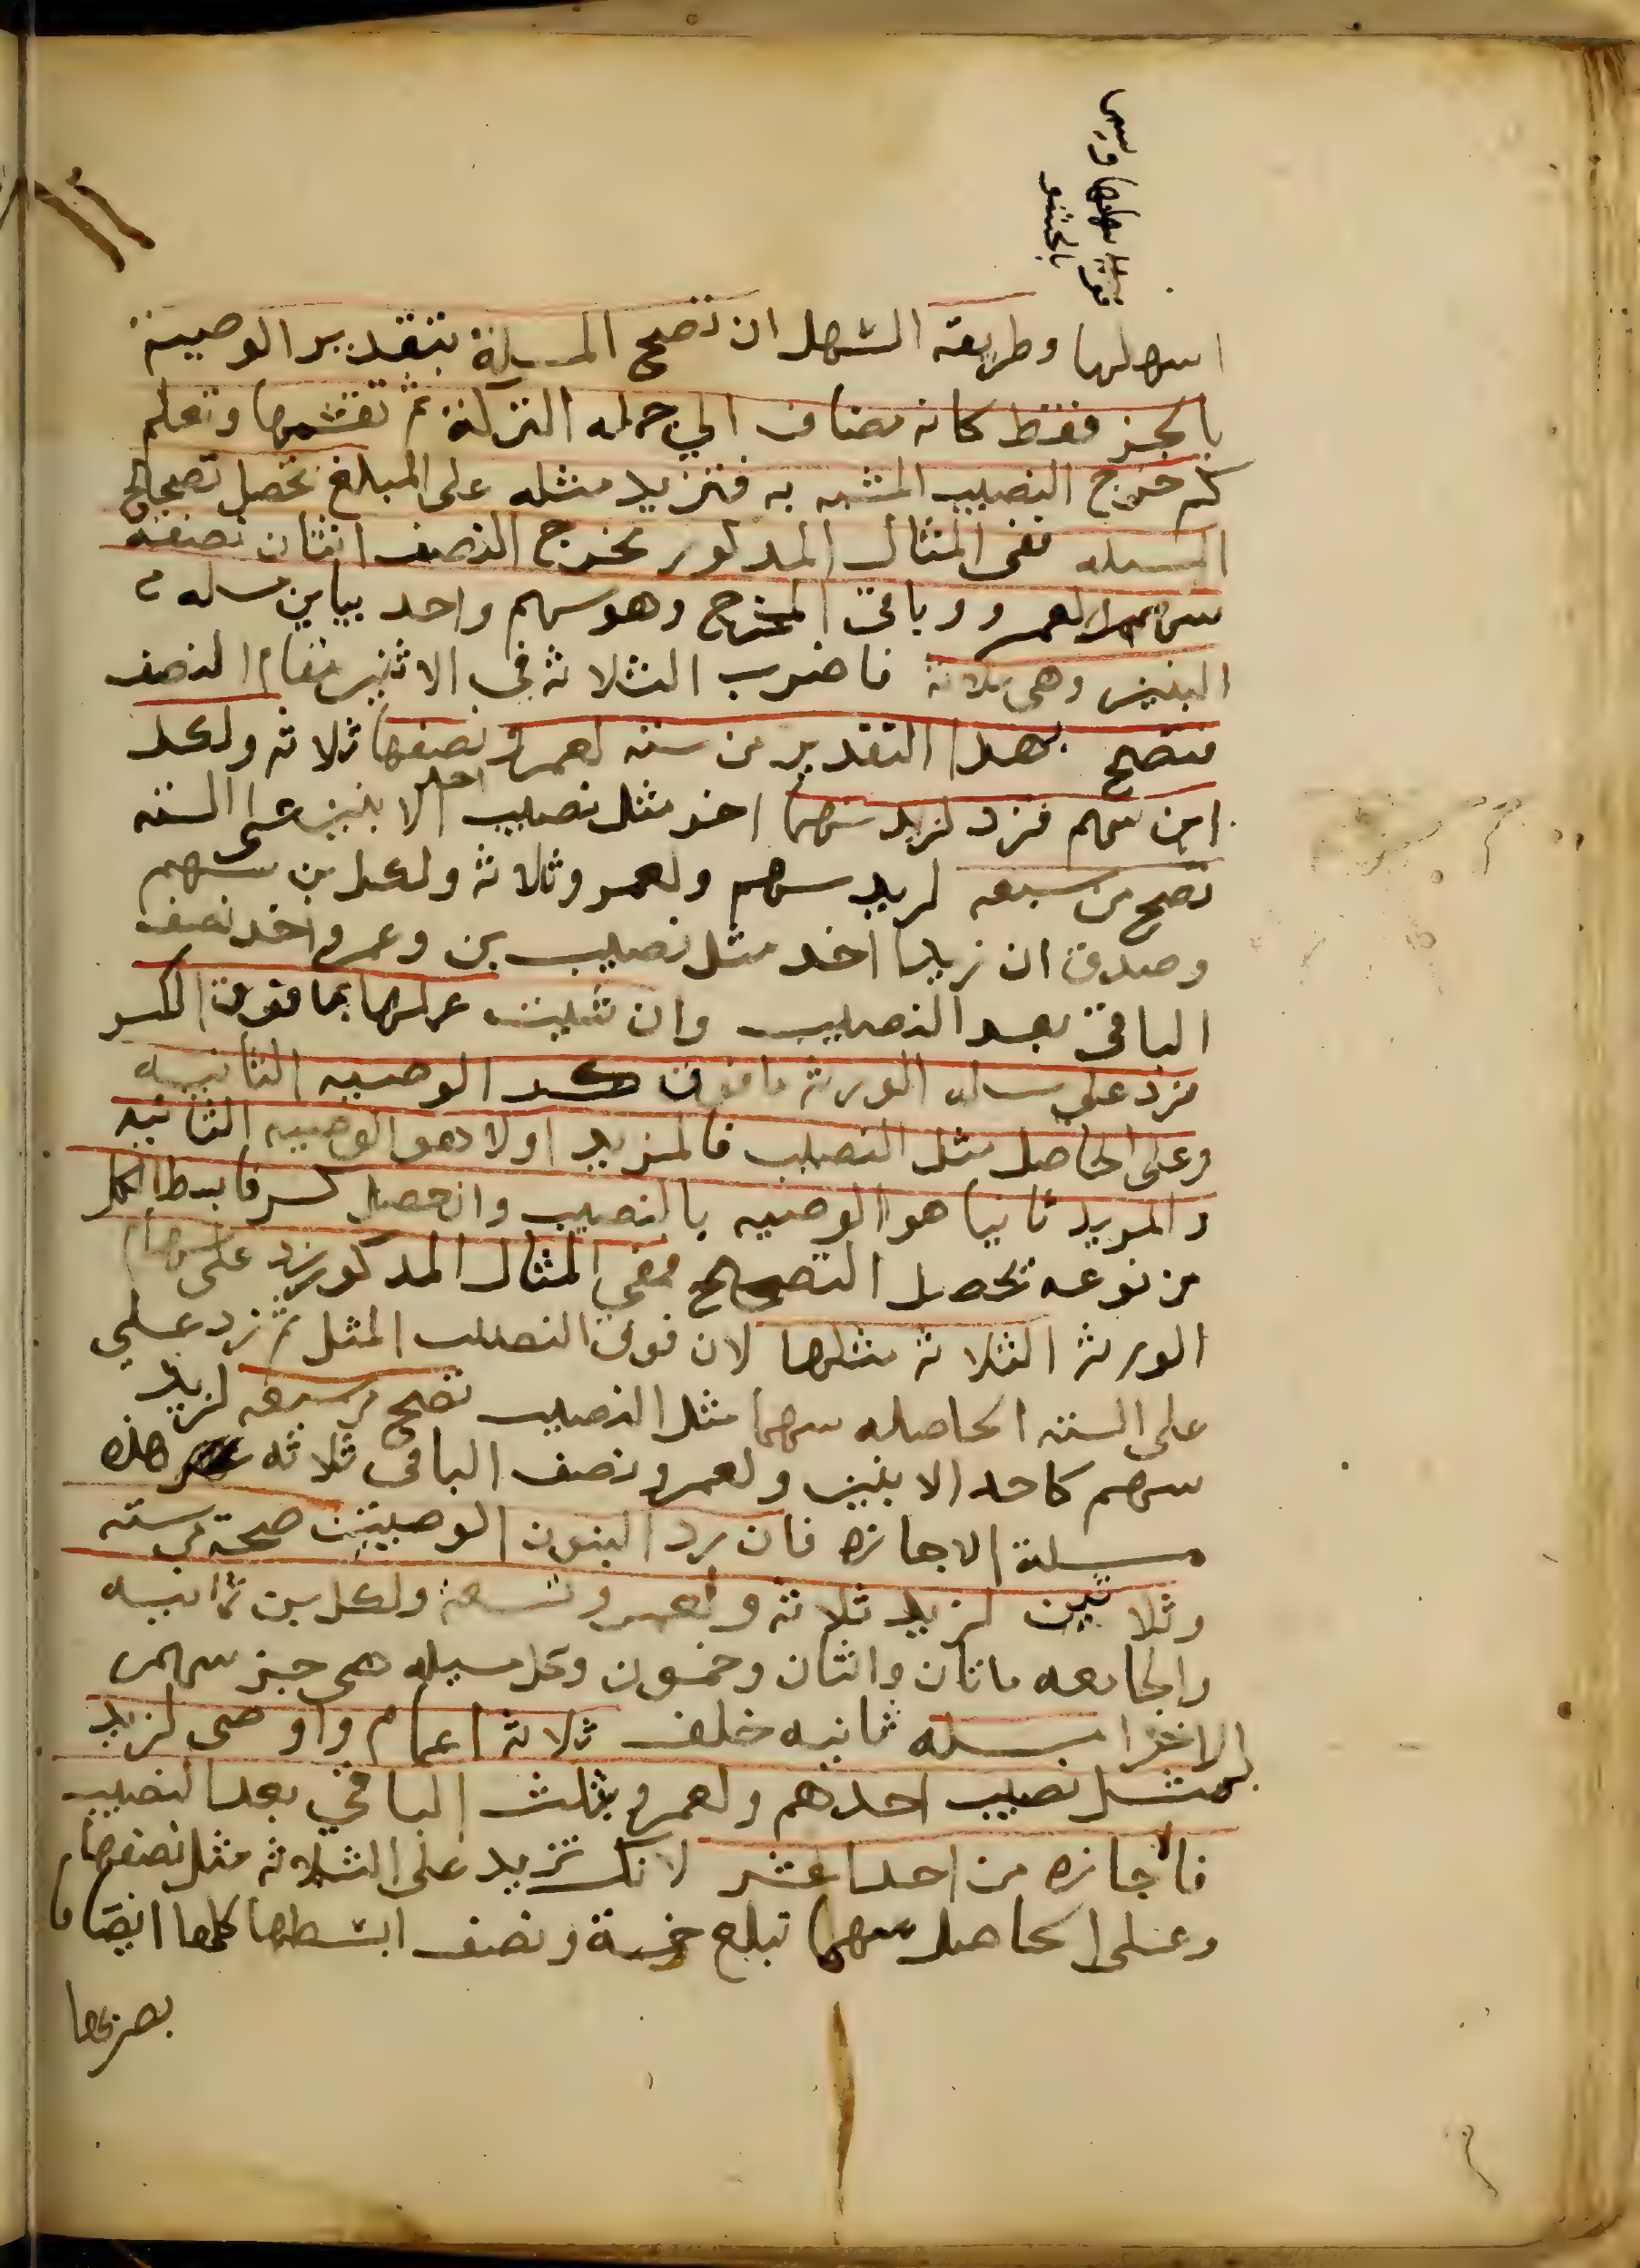 اسهلها وطريقه السهل ان تصح المسلة بتقدير الوصية
بالجز فقط كانه مضاف الي جمله التركة ثم تقسمها وتعلم
كم خرج النصيب المشبه به فتزيد مثله على المبلغ تحصل تصحالح
المسله ففي المثال المدكور مخرج النصف اثنان نصفه
سهم لعمرو وباقى المخرج وهو سهم واحد يباين مسله
البنين وهى ثلاثة فاضرب الثلاثه في الاثنين مقام النصف
فتصح بهدا التقدير من سته لعمرو نصفها ثلاثه ولكل
ابن سهم فزد لزيد سهما اخر مثل نصيب احد الابنين على السته
تصح من سبعه لزيد سهم ولعمرو ثلاثة ولكل بن سهم
وصدق ان زيدا اخد مثل نصيب بن وعمرو اخد نصف
الباقي بعد النصيب وان شيت عملها بما فوق الكسر
فزد على مسله الورثه ما فوق كسر الوصيه الثانيه
وعلى الحاصل مثل النصيب فالمزيد اولا هو الوصيه الثانيه
والمزيد ثانيا هو الوصيه بالنصيب وان حصل كسر فابسط الكل
من نوعه تحصل التصحيح ففي المثال المدكور زد على سهام
الورثه الثلاثه مثلها لان فوق النصف المثل ثم زد على
على السته الحاصله سهما مثل النصيب تصح من سبعه لزيد
سهم كاحد الابنين ولعمرو نصف الباقى ثلاثه هذه
مسيلة الاجازه فان رد البنون الوصيتين صحة من سته
وثلاثين لزيد ثلاثة ولعمرو تسعة ولكل بن ثمانيه
والجامعه ماتان واثنان وخمسون وكل مسيله هى جز سهم
الاخرا مسله ثانيه خلف ثلاثة اعمام واوصى لزيد
بمثل نصيب احدهم ولعمرو بثلث الباقي بعد النصيب
فاجازه من احدا عشر لانك تزيد على الثلاثه مثل نصفها
وعلى الحاصل سهما تبلغ خمسة ونصف ابسطها كلها انصافا
بضربها